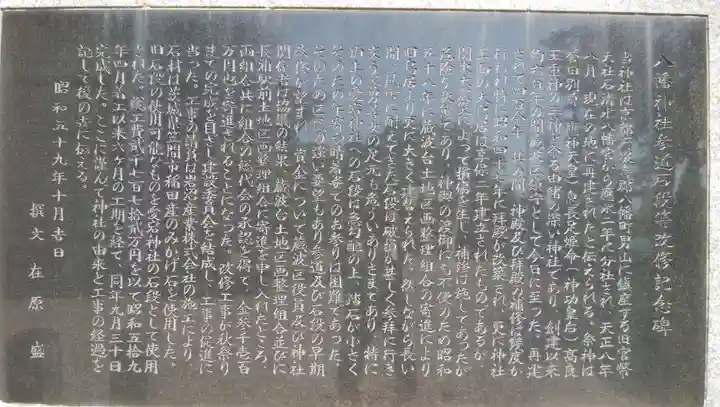 八幡神社参道石段等改修記念碑
当神社は京都府綴喜郡八幡町男山に鎮座する旧官幣
大社石清水八幡宮から應永二年に分社され、天正八年
八月、現在の地に再建されたと伝えられる。祭神は
誉田別尊(應神天皇)息長足姫命(神功皇后)高良
玉垂神の三神を祭る由緒の深い神社であり、創建以来
約六百年の間、地区の鎮守として今日に至った。再建
されて四百余年、社の間、神殿及び拝殿の補修は幾度か
行われ、特に昭和四十七年に拝殿が改築され、更に神社
正面の大鳥居は享保二年建立されたものであるが、
関東大震災によって損傷を生じ、補修は施してあったが
危険な状態であり、神輿の渡御にも不便のため昭和
五十一年に蔵波台土地区画整理組合の寄進により
旧鳥居より更に大きく建替えられた。然しながら長い
間、風雨に耐えてきた石段は破損が甚しく参拝に行き
交う老若男女の足元も危ういありさまであり、特に
山上の愛宕神社への石段は急勾配の上、踏石が小さく
そのため年寄りや晴着姿でのお参りは困難であった。
そのため区民の強い要望もあり参道及び石段の早期
改修が望まれ、資金について蔵波区役員及び神社
関係者は協議の結果、蔵波台土地区画整理組合並びに
長浦駅前土地区画整理組合に寄進を申し入れたところ、
両組合共に組合の総代会の承認を得て、金参千壱百
万円也を寄進されることになった。改修工事が秋祭り
までの完成を目ざし建設委員会を結成し、工事の促進に
当った。工事の請負は岩沼産業株式会社の施工により、
石材は茨城県笠間市稲田産のみかげ石を使用した。
旧石段の使用可能なものを愛宕神社の石段として使用
された。総工費弐千七百七拾弐万円を以て昭和五拾九
年四月着工以来六ヶ月の工期を経て、同年九月三十日
完成した。ここに謹んで神社の由来と工事の経過を
記して後の世に伝える。
昭和五十九年十月吉日
撰文 在原 盛